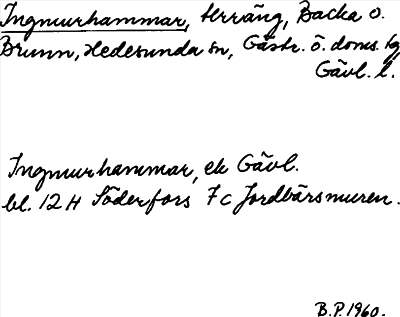 Ingmurhammar, terräng, Backa o.
Brunn, Hedesunda sn, Gästr. ö. doms. tg
Gävl. l.
Ingmurhammar, ek Gävl.
bl. 12 H Söderfors 7 c Jordbärsmuren.
B.P. 1960.